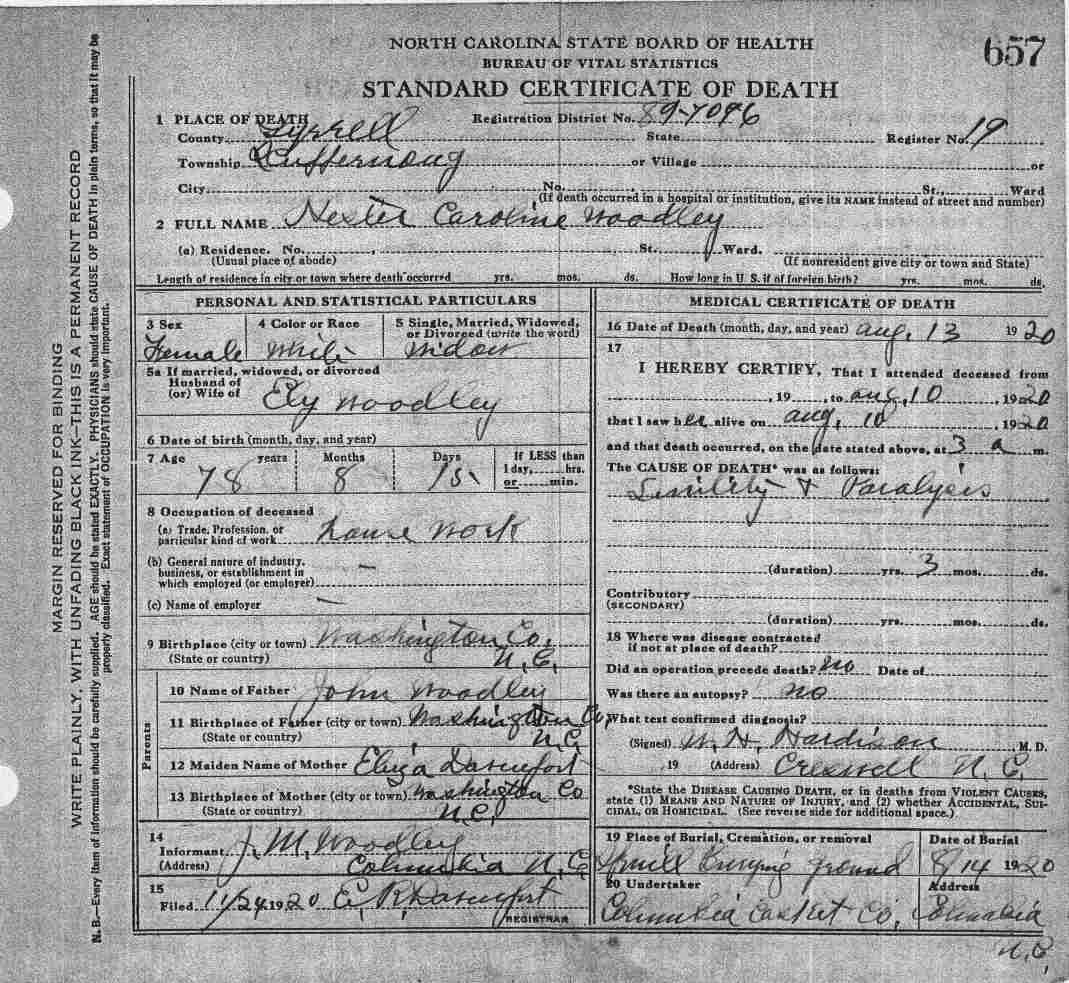 657
NORTH CAROLINA STATE BOARD OF HEALTH
BUREAU OF VITAL STATISTICS
STANDARD CERTIFICATE OF DEATH
1 PLACE OF DEATH Registration District No. 89-7096
County Tyrrell State Register No. 19
Township Scuppernong or Village or
City No. St., Ward
(If death occurred in a hospital or institution, give its NAME instead of street and number)
2 FULL NAME Hester Caroline Woodley
(a) Residence. No. St. Ward.
(Usual place of abode) (If nonresident give city or town and State)
Length of residence in city or town where death occurred yrs. mos. ds. How long in U. S. if of foreign birth? yrs. mos. ds.
PERSONAL AND STATISTICAL PARTICULARS
3 Sex 4 Color or Race 5 Single, Married, Widowed, or Divorced (write the word)
Female White Widow
5a If married, widowed, or divorced
Husband of
(or) Wife of Ely Woodley
6 Date of birth (month, day, and year)
7 Age years Months Days If LESS than
1 day, hrs.
or min.
78 8 15
8 Occupation of deceased
(a) Trade, Profession, or
particular kind of work house work
(b) General nature of industry,
business, or establishment in
which employed (or employer) —
(c) Name of employer —
9 Birthplace (city or town) Washington Co.
(State or country) N.C.
Parents
10 Name of Father John Woodley
11 Birthplace of Father (city or town) Washington Co,
(State or country) N.C.
12 Maiden Name of Mother Eliza Davenport
13 Birthplace of Mother (city or town) Washington Co
(State or country) N.C.
14
Informant J. M. Woodley
(Address) Columbia N.C.
15
Filed 11/24 1920 E. R. Davenport
REGISTRAR
MEDICAL CERTIFICATE OF DEATH
16 Date of Death (month, day, and year) Aug, 13 1920
17
I HEREBY CERTIFY, That I attended deceased from
, 19 , to Aug, 10 , 1920
that I saw her alive on Aug, 10 , 1920
and that death occurred, on the date stated above, at 3 a m.
The CAUSE OF DEATH* was as follows:
Senility & Paralysis
(duration) yrs. 3 mos. ds.
Contributory
(SECONDARY)
(duration) yrs. mos. ds.
18 Where was disease contracted
if not at place of death?
Did an operation precede death? no Date of
Was there an autopsy? no
What test confirmed diagnosis?
(Signed) W. H. Hardison M. D.
, 19 (Address) Creswell N.C.
*State the DISEASE CAUSING DEATH, or in deaths from VIOLENT CAUSES,
state (1) MEANS AND NATURE OF INJURY, and (2) whether ACCIDENTAL, SUI-
CIDAL, OR HOMICIDAL. (See reverse side for additional space.)
19 Place of Burial, Cremation, or removal Date of Burial
Spruill Burying ground 8/14 1920
20 Undertaker Address
Columbia Casket Co, Columbia
N.C.
MARGIN RESERVED FOR BINDING
WRITE PLAINLY, WITH UNFADING BLACK INK—THIS IS A PERMANENT RECORD
N. B.—Every item of information should be carefully supplied. AGE should be stated EXACTLY. PHYSICIANS should state CAUSE OF DEATH in plain terms, so that it may be
properly classified. Exact statement of OCCUPATION is very important.